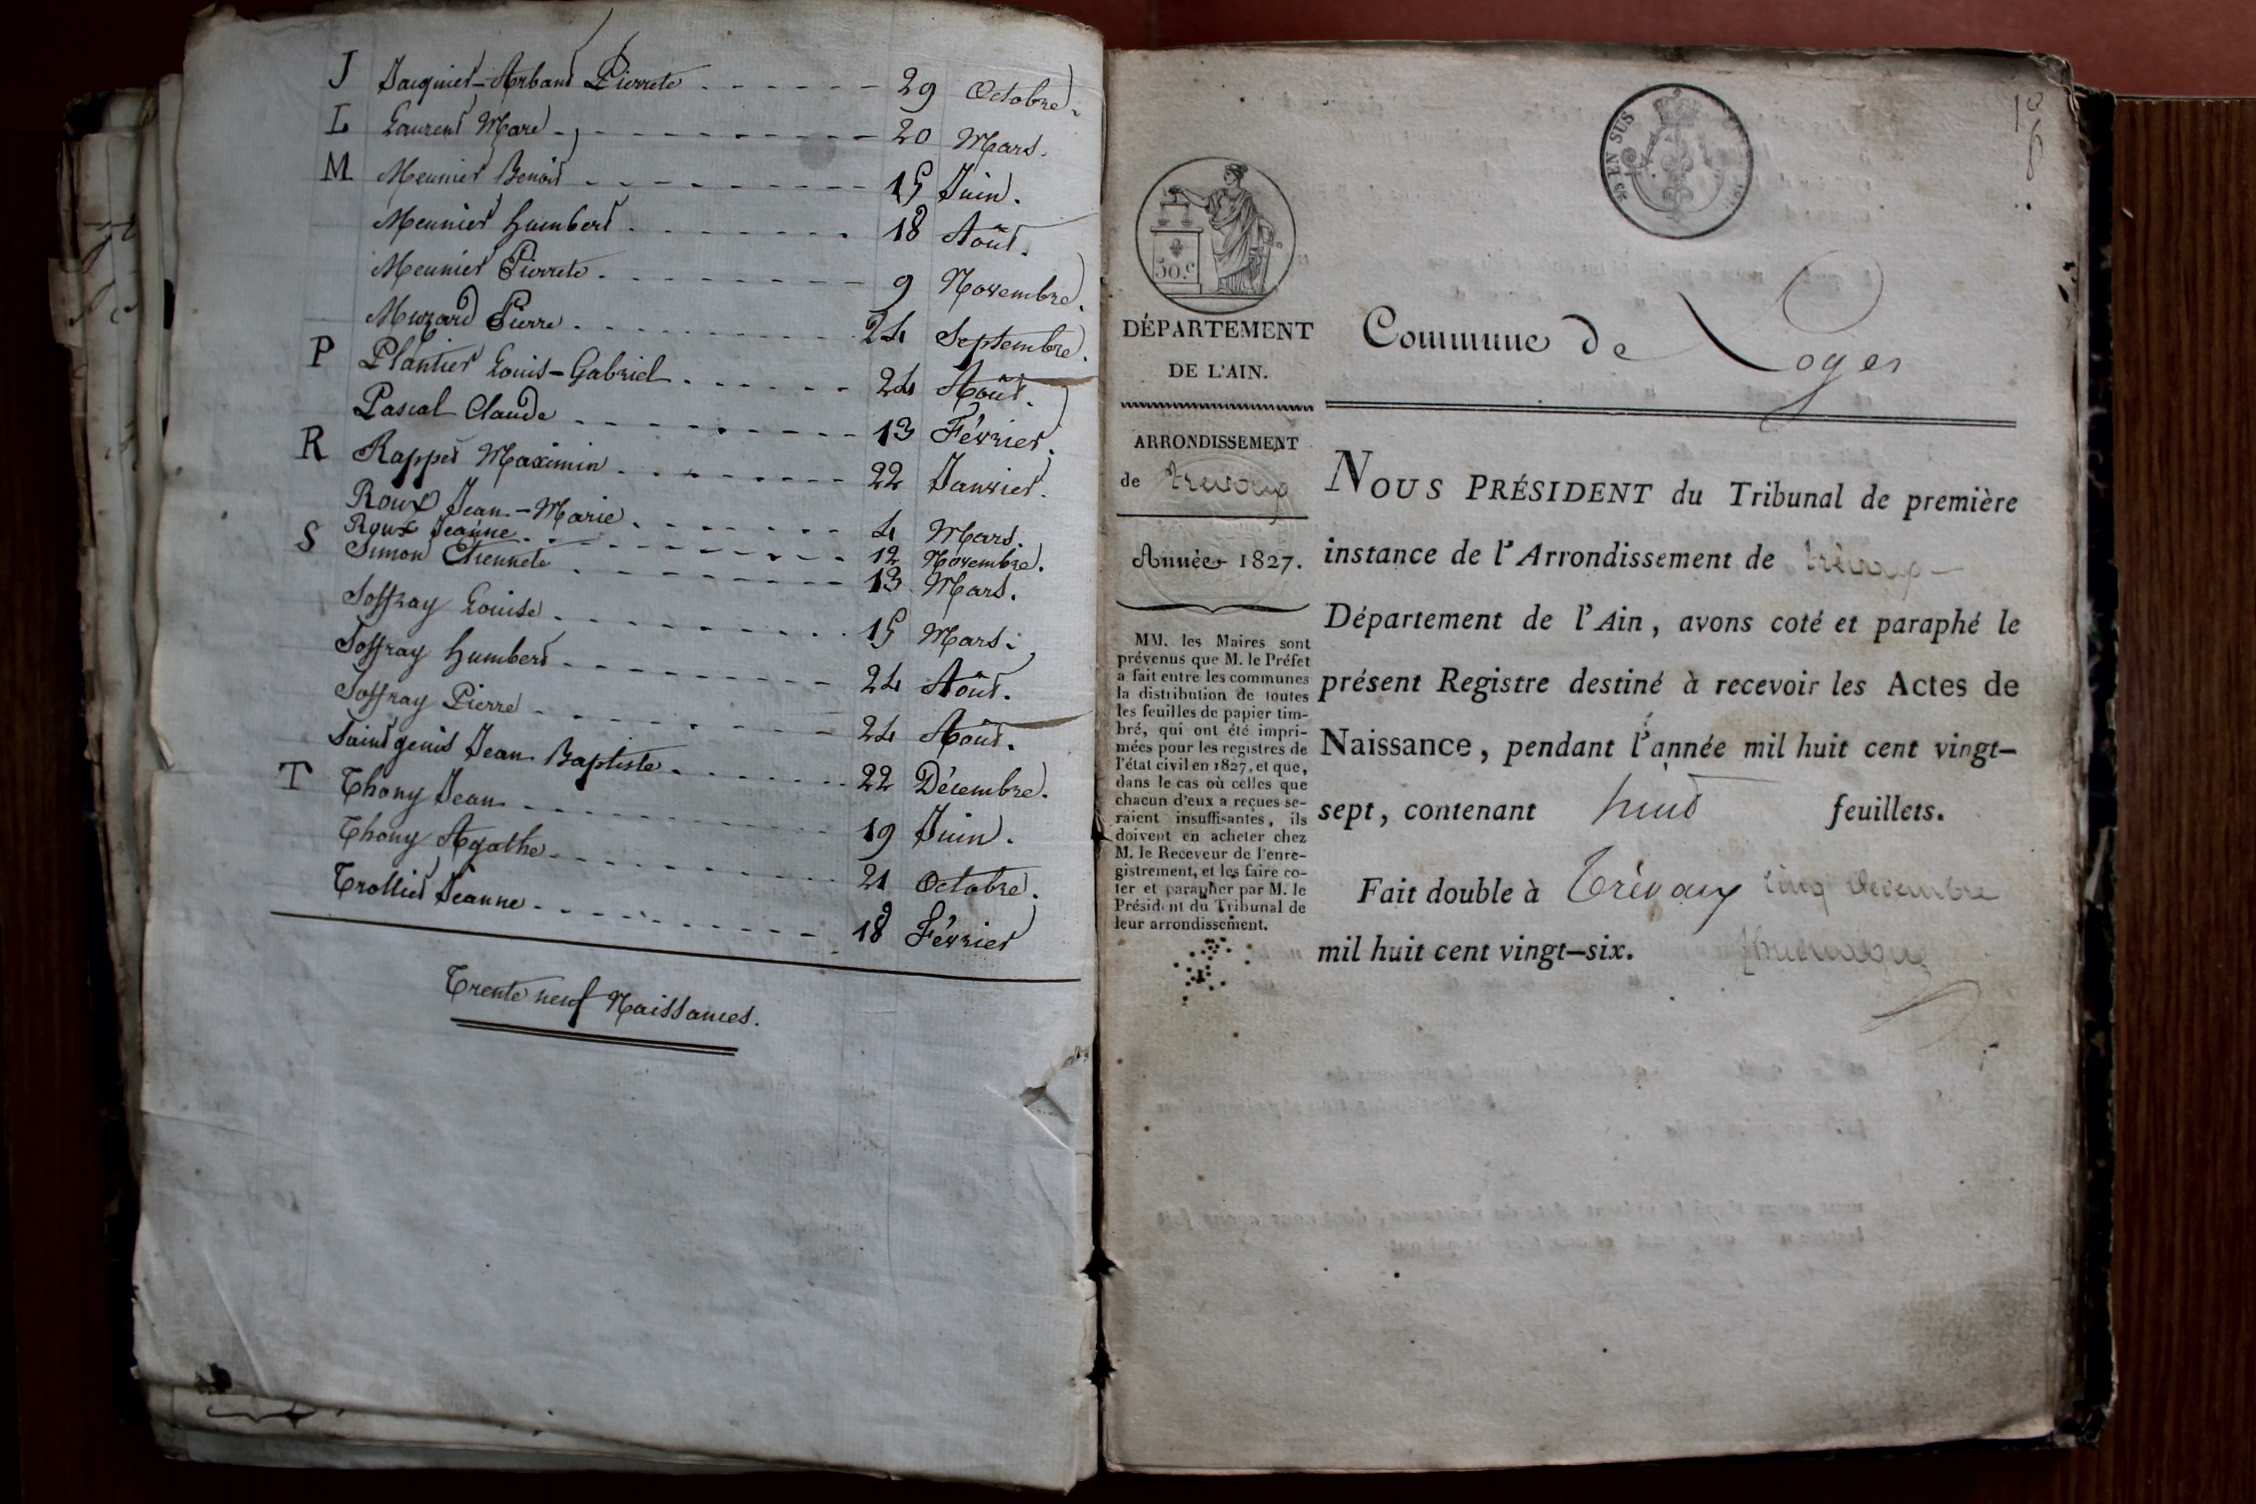 J Jacquiet-Arband Pierrete 29 Octobre.
L Laurent Marc 20 Mars.
M Meunier Benoit 15 Juin.
Meunier humbert 18 Août.
Meunier Pierrete 9 Novembre.
Muzard Pierre 24 Septembre.
P Plantier Louis-Gabriel 24 Août.
Pascal Claude 13 Février.
R Rappet Maximin 22 Janvier.
Roux Jean-Marie 4 Mars.
Roux Jeanne 12 Novembre.
S Simon Etiennete 13 Mars.
Soffray Louise 15 Mars.
Soffray humbert 24 Août.
Soffray Pierre 24 Août.
Saintgenis Jean Baptiste 22 Décembre.
T Thony Jean 19 Juin.
Thony Agathe 21 Octobre.
Trollier Jeanne 18 Février
Trente neuf Naissances.
EN SUS
50.c
DÉPARTEMENT
DE L'AIN.
ARRONDISSEMENT
de trevoux
Année 1827.
MM. les Maires sont
prévenus que M. le Préfet
a fait entre les communes
la distribution de toutes
les feuilles de papier tim-
bré, qui ont été impri-
mées pour les registres de
l'état civil en 1827, et que,
dans le cas où celles que
chacun d'eux a reçues se-
raient insuffisantes, ils
doivent en acheter chez
M. le Receveur de l'enre-
gistrement, et les faire co-
ter et parapher par M. le
Président du Tribunal de
leur arrondissement.
Commune de Loyes
NOUS PRÉSIDENT du Tribunal de première
instance de l'Arrondissement de trévoux
Département de l'Ain, avons coté et paraphé le
présent Registre destiné à recevoir les Actes de
Naissance, pendant l'année mil huit cent vingt-
sept, contenant huit feuillets.
Fait double à Trévoux cinq decembre
mil huit cent vingt-six.